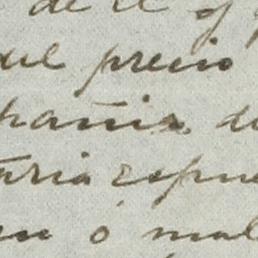 de el y
del precio
pañia, de
taria espue
en ó mal